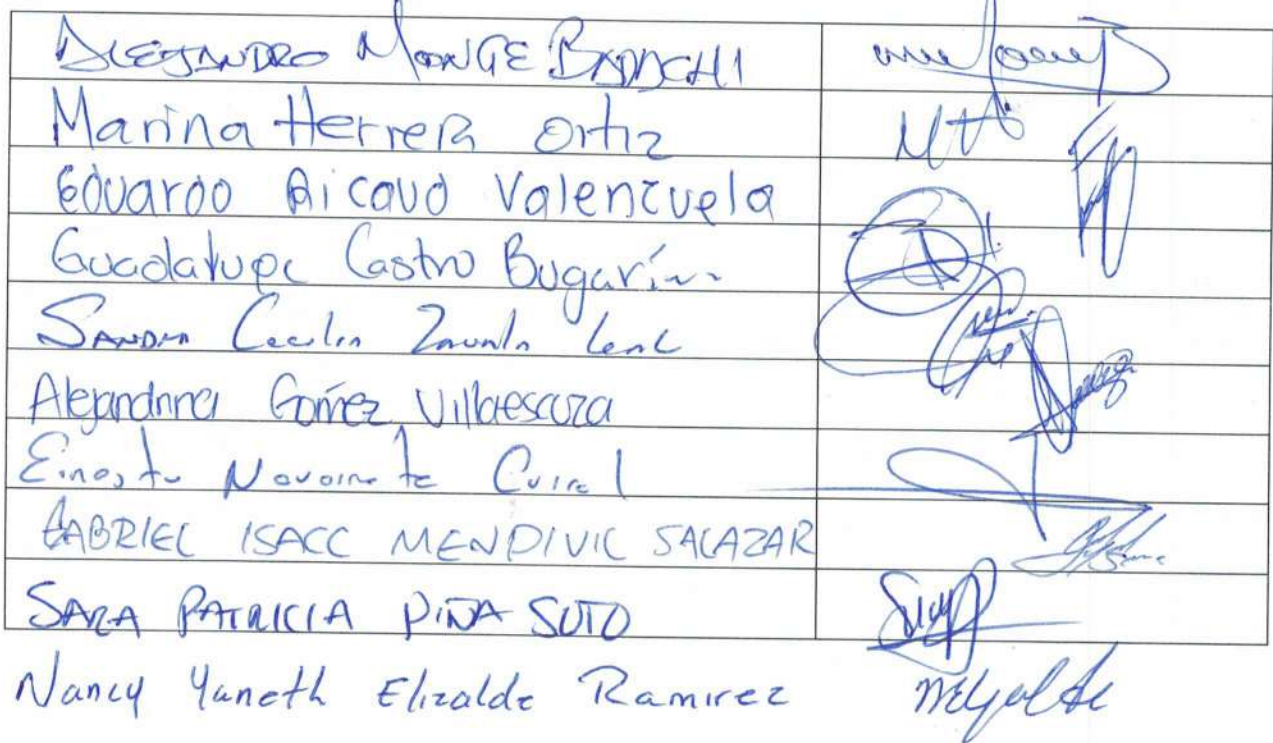 ALEJANDRO MONGE BADACHI
Marina Herrera Ortiz
Eduardo Ricaud Valenzuela
Guadalupe Castro Bugarín
SANDRA Cecilia Zavala Leal
Alejandrina Gómez Villaescuza
Ernesto Navarrete
GABRIEL ISACC MENDIVIL SALAZAR
SARA PATRICIA PIÑA SOTO
Nancy Yaneth Elizalde Ramirez